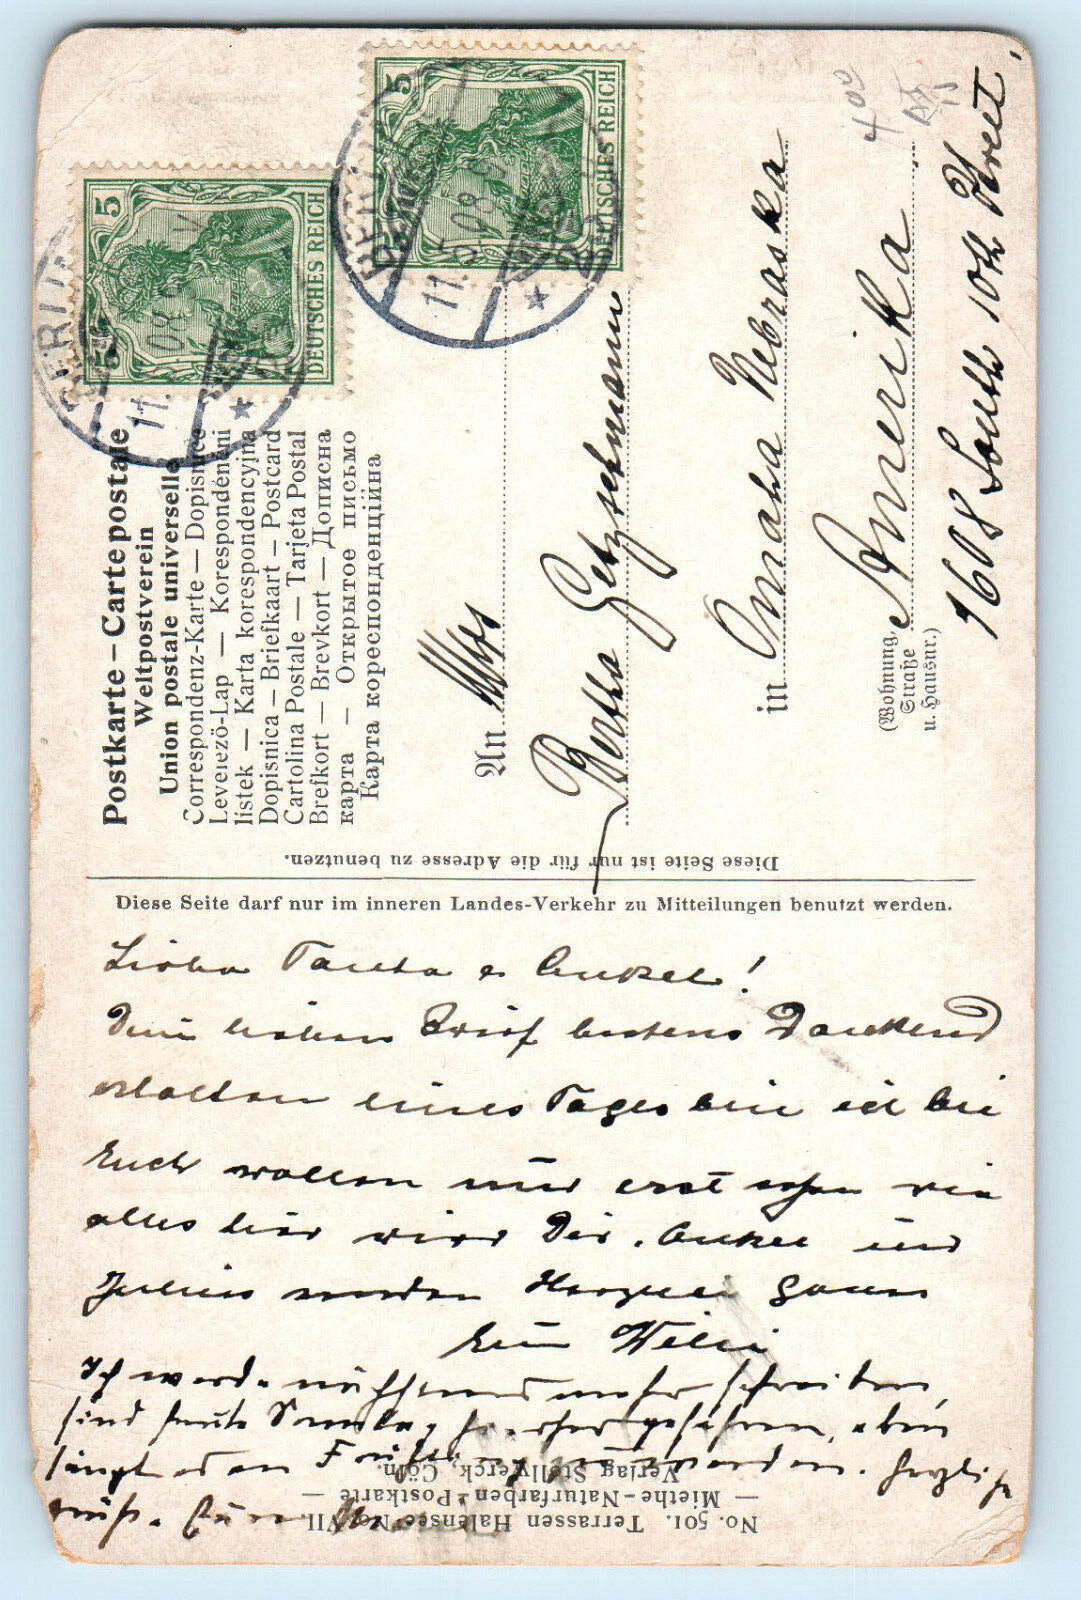 5
5
DEUTSCHES REICH
BERLIN
11.5.08.9
5
5
DEUTSCHES REICH
BERLIN
11. 08
Postkarte — Carte postale
Weltpostverein
Union postale universelle
Correspondenz-Karte — Dopisnice
Levelező-Lap — Korespondenční
listek — Karta korespondencyjna
Dopisnica — Briefkaart — Postcard
Cartolina Postale — Tarjeta Postal
Brefkort — Brevkort — Дописна
карта — Открытое письмо
Карта кореспонденційна
An
Bertha Getzschmann
in Omaha Nebraska
Amerika
(Wohnung, Straße u. Hausnr.)
1608 South 10th Street.
400
Diese Seite ist nur für die Adresse zu benutzen.
Diese Seite darf nur im inneren Landes-Verkehr zu Mitteilungen benutzt werden.
Liebe Tante & Onkel!
Dein lieben Brief bestens Dankend
erhalten eines Tages bin ich bei
Euch wollen nur erst sehen wie
alles hier wird Dir. Onkel und
Julius senden Herzliche
Euer Willi
Ich werde nächstens mehr schreiben,
sind heute
No. 501. Terrassen Halensee No. VII
— Miethe-Naturfarben-Postkarte —
Verlag Stollwerck, Cöln.